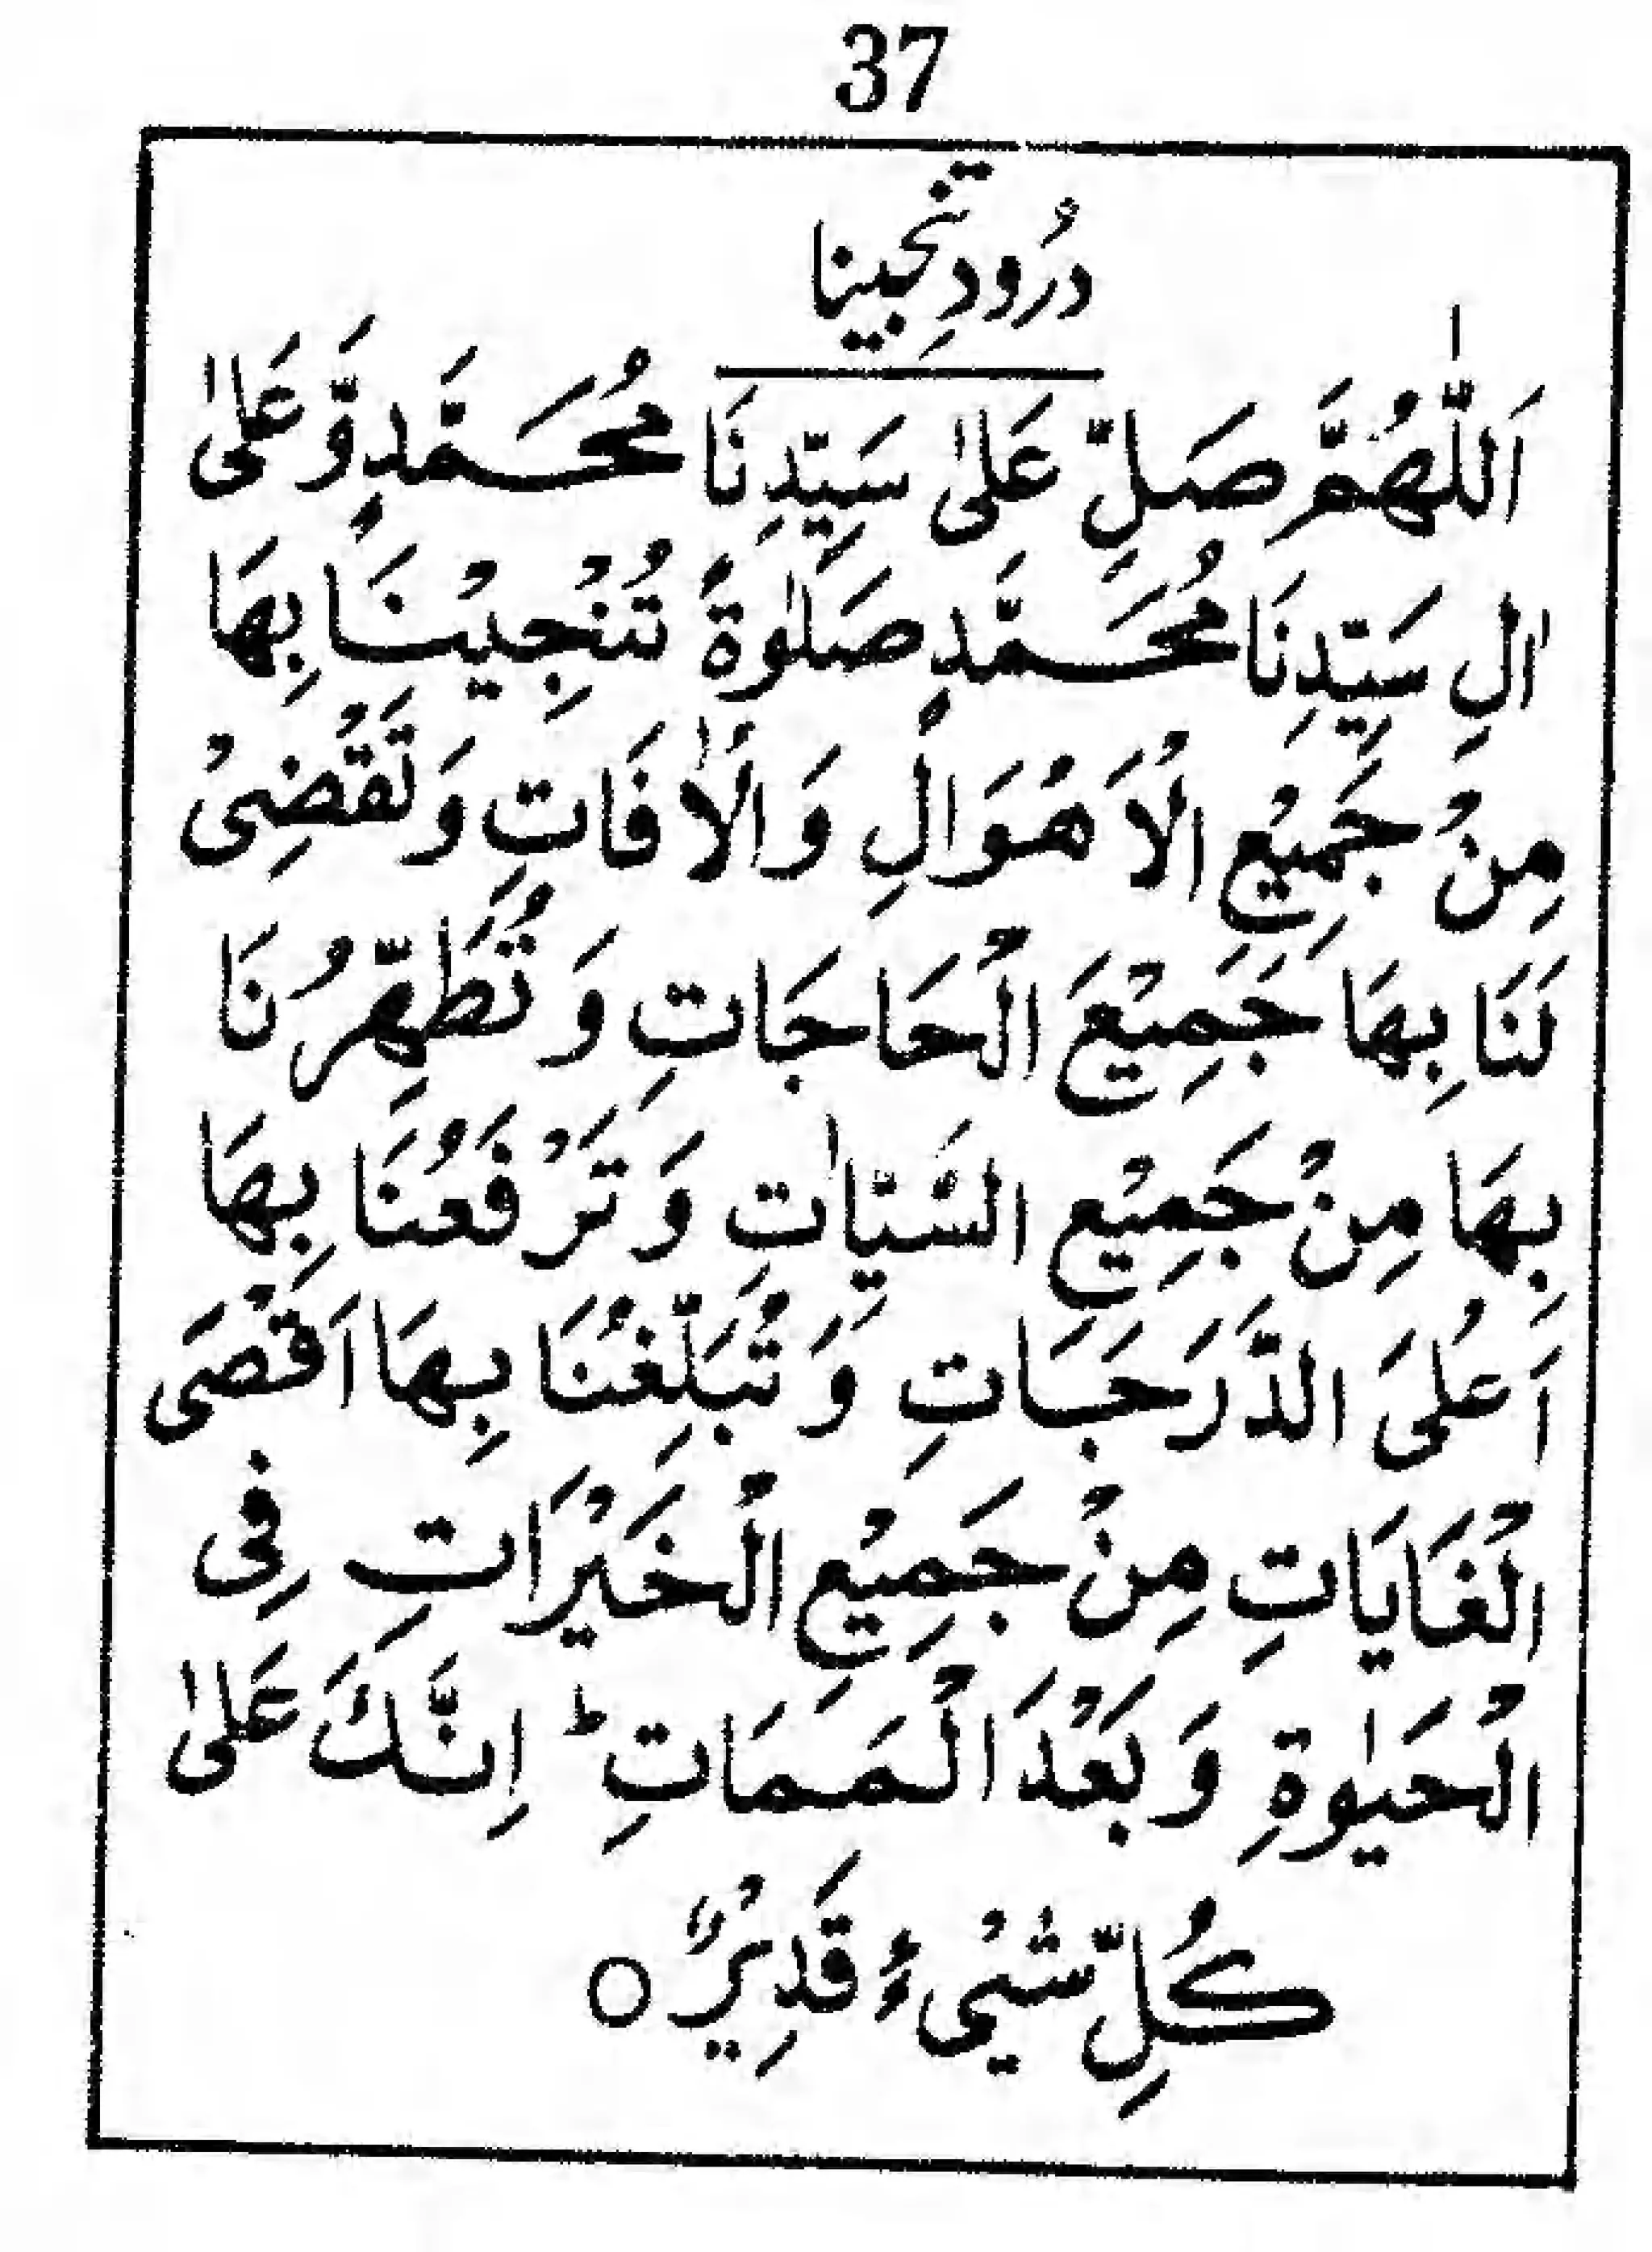 37
درُودِ تنجینا
اَللّٰهُمَّ صَلِّ عَلٰى سَيِّدِنَا مُحَمَّدٍ وَّعَلٰى
اٰلِ سَيِّدِنَا مُحَمَّدٍ صَلٰوةً تُنْجِيْنَا بِهَا
مِنْ جَمِيْعِ الْاَهْوَالِ وَالْاٰفَاتِ وَتَقْضِىْ
لَنَا بِهَا جَمِيْعَ الْحَاجَاتِ وَتُطَهِّرُنَا
بِهَا مِنْ جَمِيْعِ السَّيِّاٰتِ وَتَرْفَعُنَا بِهَا
اَعْلَى الدَّرَجَاتِ وَتُبَلِّغُنَا بِهَا اَقْصَى
الْغَايَاتِ مِنْ جَمِيْعِ الْخَيْرَاتِ فِى
الْحَيٰوةِ وَبَعْدَ الْمَمَاتِ ؕ اِنَّكَ عَلٰى
كُلِّ شَيْءٍ قَدِيْرٌ ○